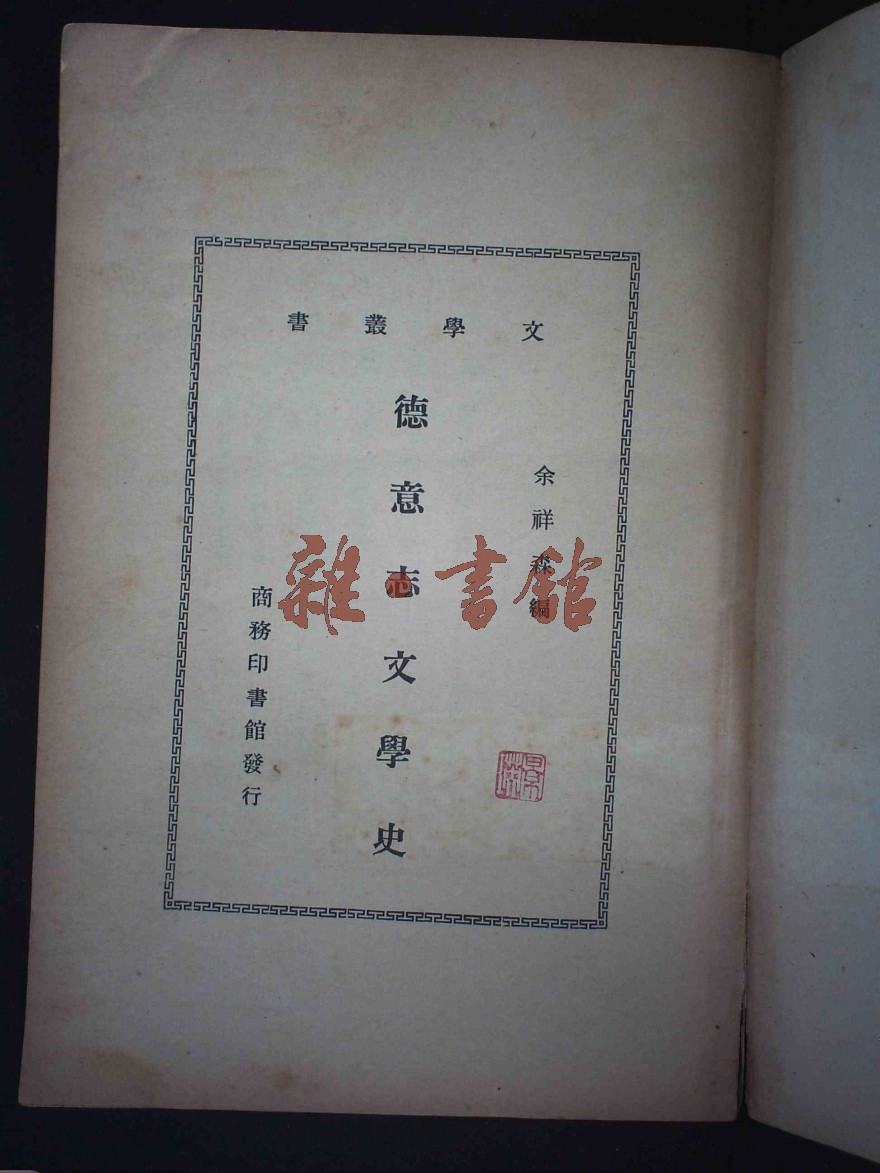 文學叢書
余祥森編
德意志文學史
商務印書館發行
雜·書館